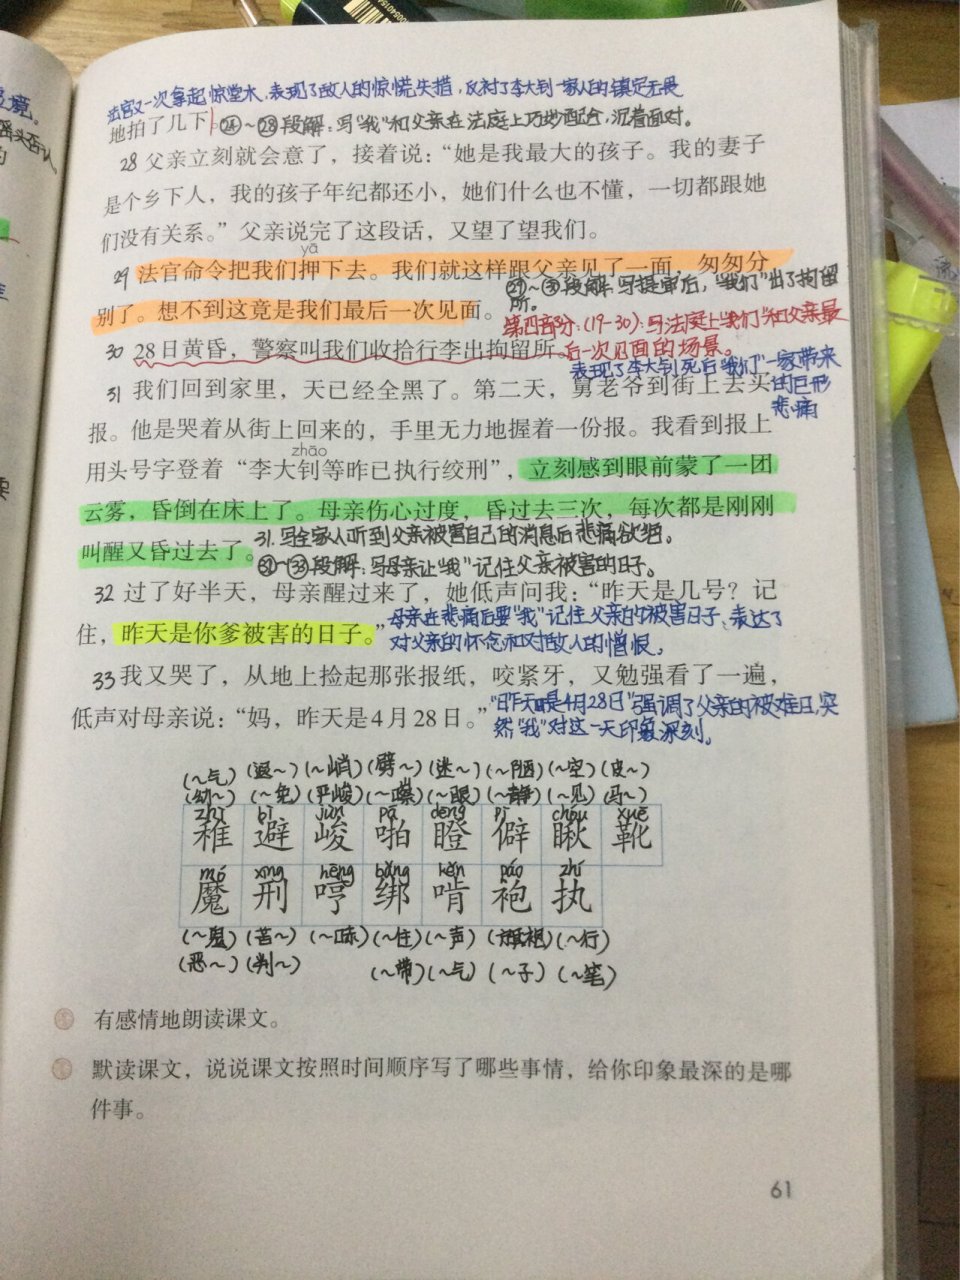 法官又一次拿起惊堂木，表现了敌人的惊慌失措，反衬了李大钊一家人的镇定无畏
地拍了几下
㉔～㉘段解：写“我”和父亲在法庭上巧妙配合，沉着面对。
28 父亲立刻就会意了，接着说：“她是我最大的孩子。我的妻子
是个乡下人，我的孩子年纪都还小，她们什么也不懂，一切都跟她
们没有关系。”父亲说完了这段话，又望了望我们。
yā
29 法官命令把我们押下去。我们就这样跟父亲见了一面，匆匆分
㉙～㉚段解：写提审后，“我们”出了拘留
所。
别了。想不到这竟是我们最后一次见面。
第四部分：(19-30)：写法庭上“我们”和父亲最
30 28日黄昏，警察叫我们收拾行李出拘留所。
后一次见面的场景。
表现了李大钊死后“我们”一家带来
的巨形
悲痛
31 我们回到家里，天已经全黑了。第二天，舅老爷到街上去买
报。他是哭着从街上回来的，手里无力地握着一份报。我看到报上
zhāo
用头号字登着“李大钊等昨已执行绞刑”，立刻感到眼前蒙了一团
云雾，昏倒在床上了。母亲伤心过度，昏过去三次，每次都是刚刚
叫醒又昏过去了。
31. 写全家人听到父亲被害自己的消息后悲痛欲绝。
㉛～㉝段解：写母亲让“我”记住父亲被害的日子。
32 过了好半天，母亲醒过来了，她低声问我：“昨天是几号？记
住，昨天是你爹被害的日子。”
母亲在悲痛后要“我”记住父亲的被害日子，表达了
对父亲的怀念和对敌人的憎恨。
33 我又哭了，从地上捡起那张报纸，咬紧牙，又勉强看了一遍，
低声对母亲说：“妈，昨天是4月28日。”
“昨天是4月28日”强调了父亲的被难日，突
然“我”对这一天印象深刻。
(～气) (退～) (～峭) (劈～) (迷～) (～陋) (～空) (皮～)
(幼～) (～免) (严峻) (～嚓) (～眼) (～静) (～见) (马～)
zhì bì jùn pā dèng pì chǒu xuē
稚 避 峻 啪 瞪 僻 瞅 靴
mó xíng hēng bǎng kěn páo zhí
魔 刑 哼 绑 啃 袍 执
(～鬼) (苦～) (～哧) (～住) (～声) (旗袍) (～行)
(恶～) (判～) (～带) (～气) (～子) (～笔)
有感情地朗读课文。
默读课文，说说课文按照时间顺序写了哪些事情，给你印象最深的是哪
件事。
61